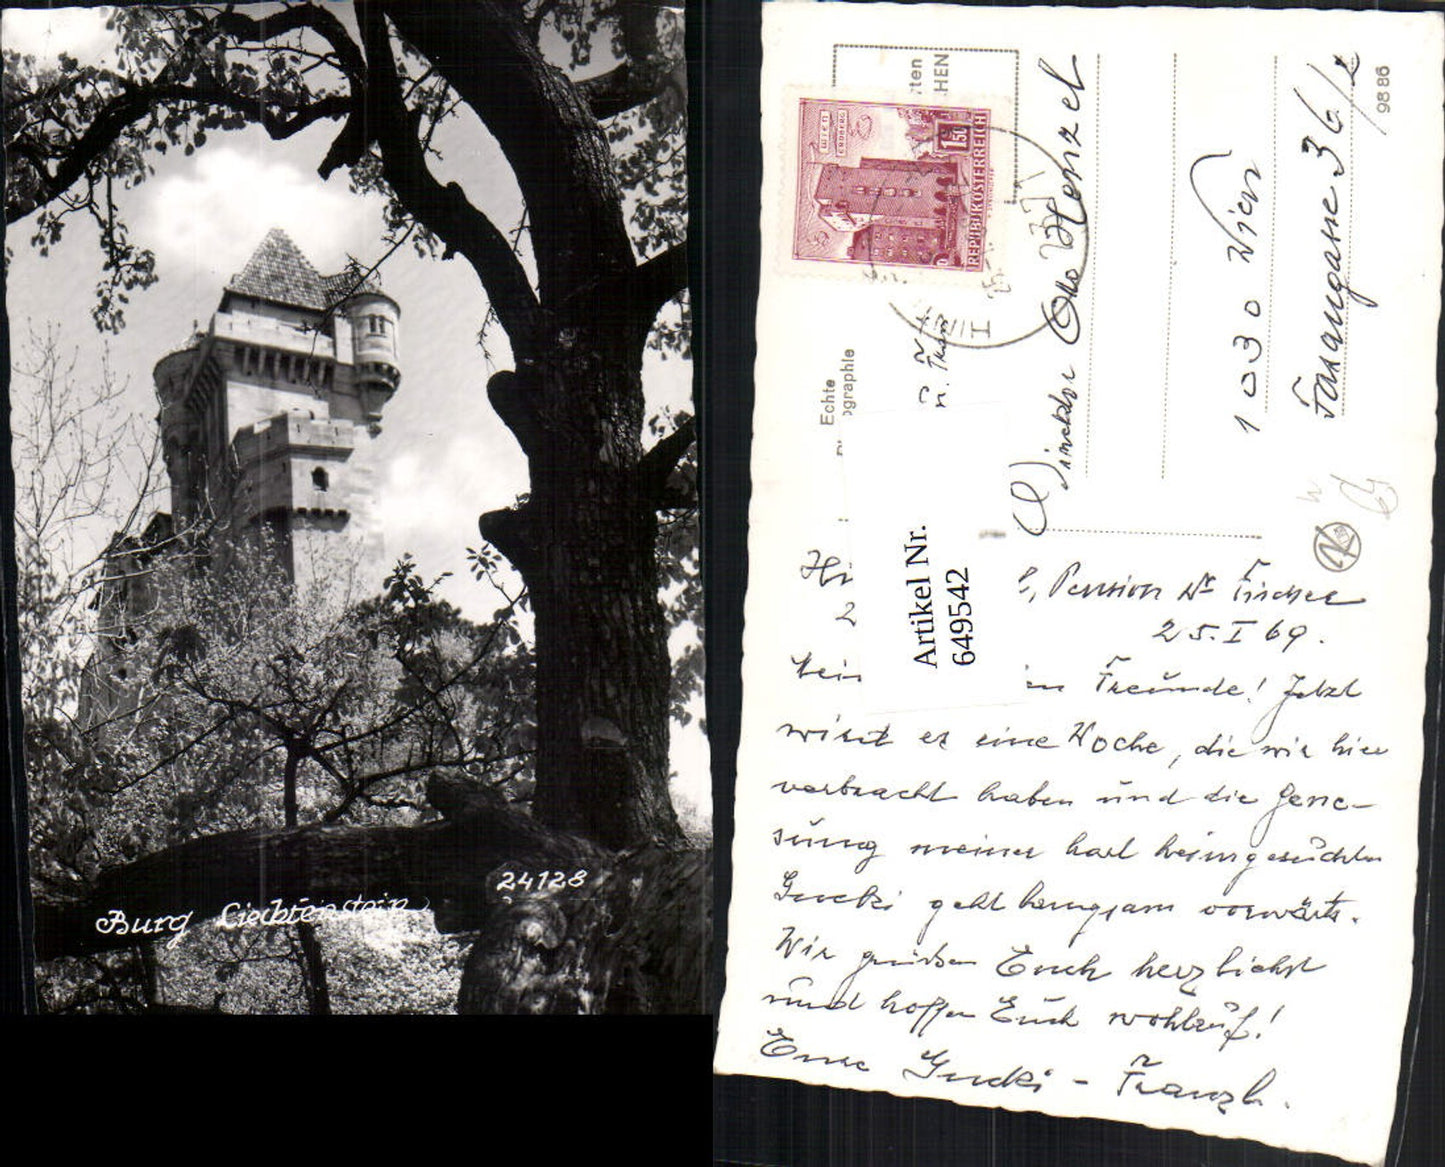 24128
Burg Liechtenstein
ten
HEN
WIEN
ERDBERG
1.50
REPUBLIK ÖSTERREICH
Echte
ographie
Artikel Nr.
649542
Otto Henzel
1030 Wien
Fasangasse 36/2
9886
Hi
Pension Fischer
2
25.I 69.
Freunde! Jetzt
wird es eine Woche, die wir hier
verbracht haben und die Gene-
sung meiner hart heimgesuchten
Gucki geht langsam vorwärts.
Wir grüßen Euch herzlichst
und hoffen Euch wohlauf!
Eure Gucki - Franzl.